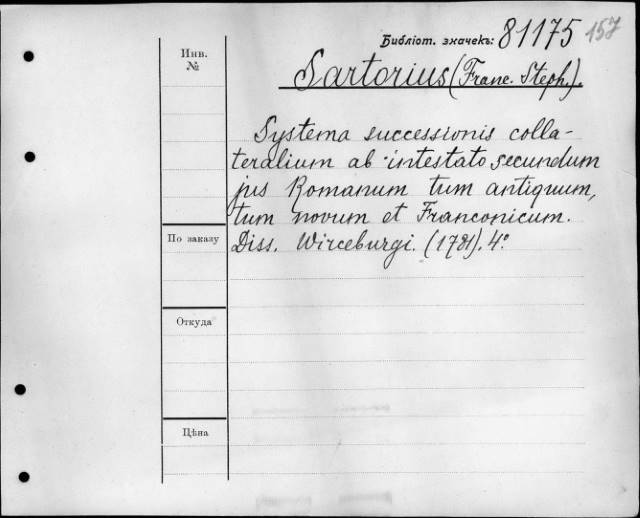 Библіот. значекъ: 81175 157
Инв.
№
Sartorius (Franc. Steph.).
Systema successionis colla-
teralium ab intestato secundum
jus Romanum tum antiquum,
tum novum et Franconicum.
По заказу
Diss. Wirceburgi. (1781). 4°
Откуда
Цѣна